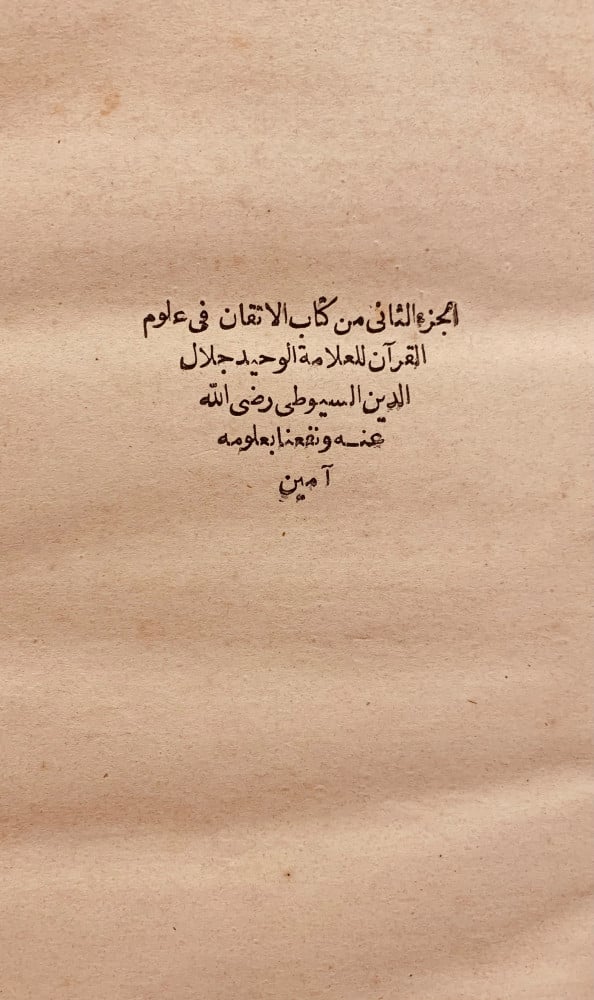 الجزء الثانى من كتاب الاتقان فى علوم
القرآن للعلامة الوحيد جلال
الدين السيوطى رضى الله
عنـه ونفعنا بعلومه
آمين